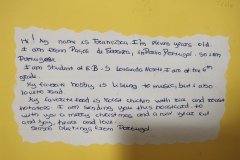 Hi! My name is Francisca. I'm eleven years old.
I am from Paços de Ferreira, in Porto Portugal. So I am
Portuguese.
I am student at E.B. 5 I am of the 6th
grade.
My favorite hobby is listing to music, but I also
love to read.
My favorite food is roast chicken with rice and roast
potatoes. I am sending you this postcard to
wish you a merry christmas and a new year full
and joy, peace and love...
Season Greetings from Portugal